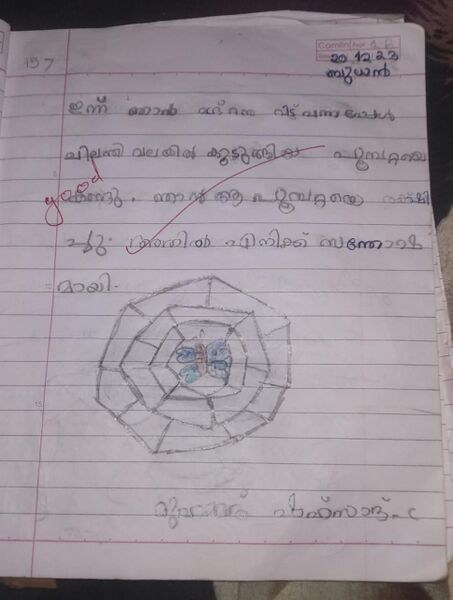 157
20 12 23
ബുധൻ
ഇന്ന് ഞാൻ വിട്ട് വന്നപ്പോൾ
ചിലന്തി വലയിൽ കുടുങ്ങിയ പൂമ്പറ്റയെ
good
കണ്ടു. ഞാൻ ആ പൂമ്പറ്റയെ രക്ഷി
ച്ചു. അതിൽ എനിക്ക് സന്തോഷ
മായി.
ഷഹ്സാദ്. C